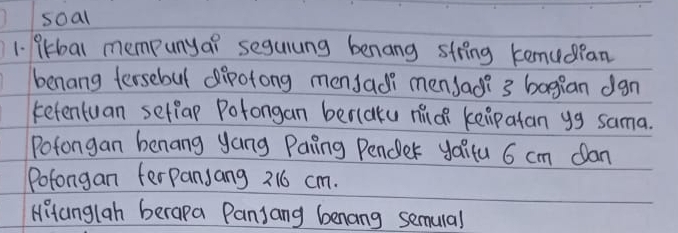 soal
1. ikbal mempunyai segulung benang string kemudian
benang tersebut dipotong menjadi menjadi 3 bagian dgn
ketentuan setiap Potongan berlaku nilai kelipatan yg sama.
Potongan benang yang Paling Pendek yaitu 6 cm dan
Potongan terpanjang 216 cm.
Hitunglah berapa Panjang benang semula!